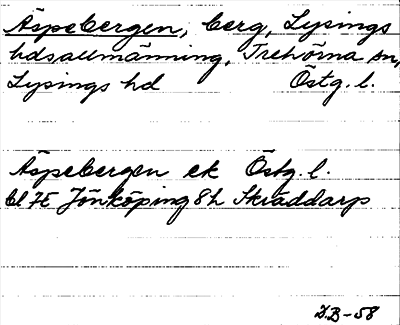 Äspebergen, berg, Lysings
hdsallmänning, Trehörna sn,
Lysings hd Östg. l.
Äspebergen ek Östg. l.
bl 7E Jönköping 8h Skräddarp
I.B-58